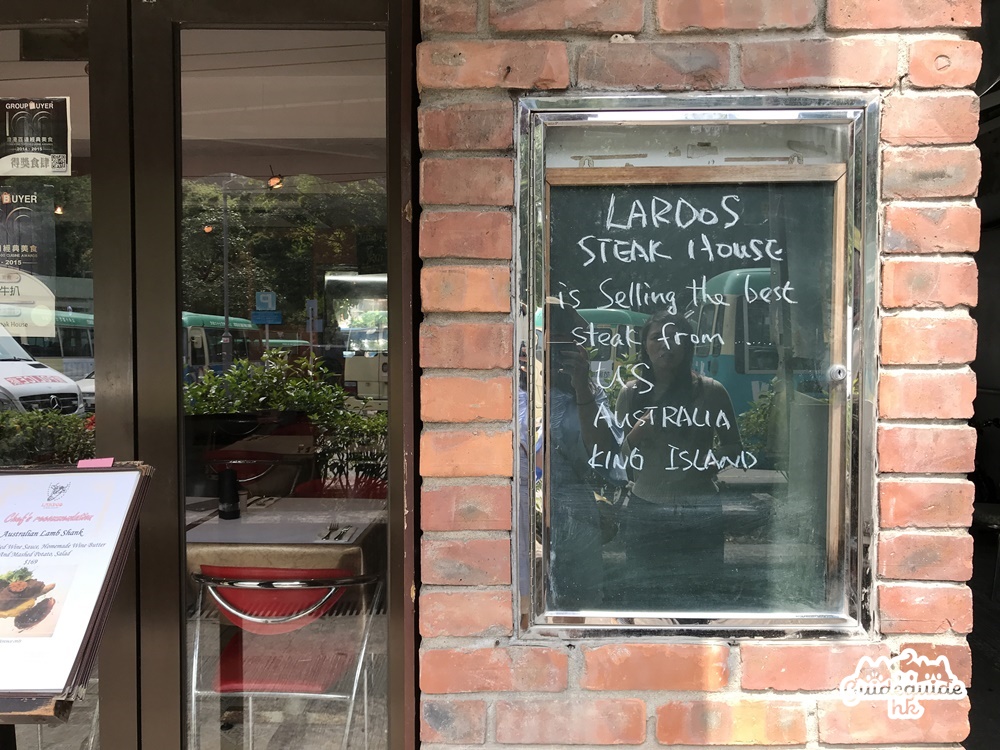 GROUP BUYER
100
2014 - 2015
得獎食肆
BUYER
經典美食
- 2015
牛扒
ak House
P
Chef's recommendation
Australian Lamb Shank
Red Wine Sauce, Homemade Wine Butter
And Mashed Potato, Salad
$169
LARDOS
STEAK HOUSE
is Selling the best
steak from ......
US
AUSTRALIA
KING ISLAND
Guideguide
hk